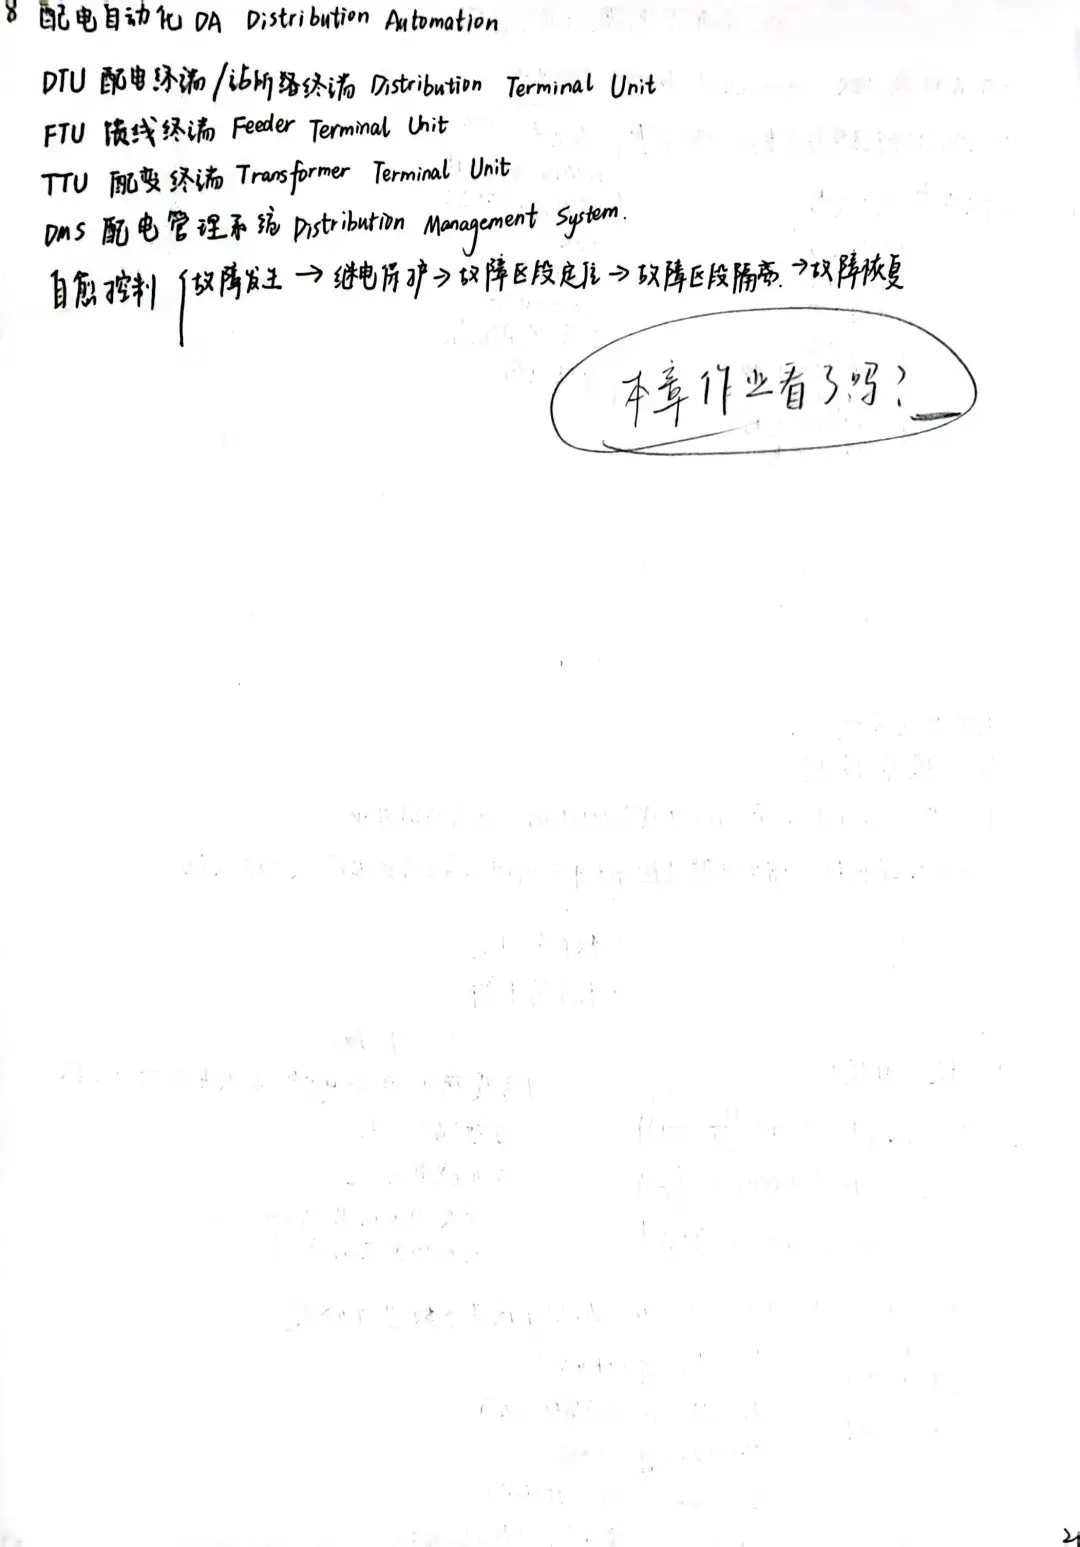 8 配电自动化 DA Distribution Automation
DTU 配电终端/站所终端 Distribution Terminal Unit
FTU 馈线终端 Feeder Terminal Unit
TTU 配变终端 Transformer Terminal Unit
DMS 配电管理系统 Distribution Management System.
自愈控制 { 故障发生 → 继电保护 → 故障区段定位 → 故障区段隔离 → 故障恢复
本章作业看了吗?